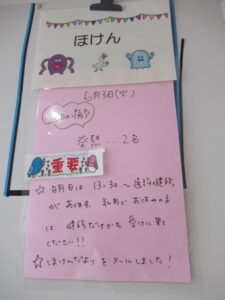 ほけん
6月3日(火)
今日の病欠
発熱…2名
重要
☆ 明日は 13:30〜 歯科健診
があります。私用でお休みの子
は、健診だけでも受けに来て
ください!!
☆ ほけんだよりをメールしました!